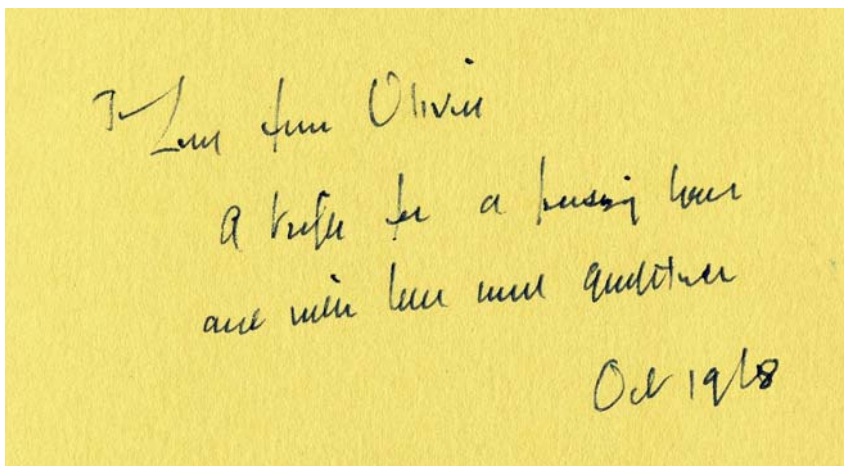 To Lem from Oliver
A trifle for a passing hour
and with love and gratitude
Oct 1968